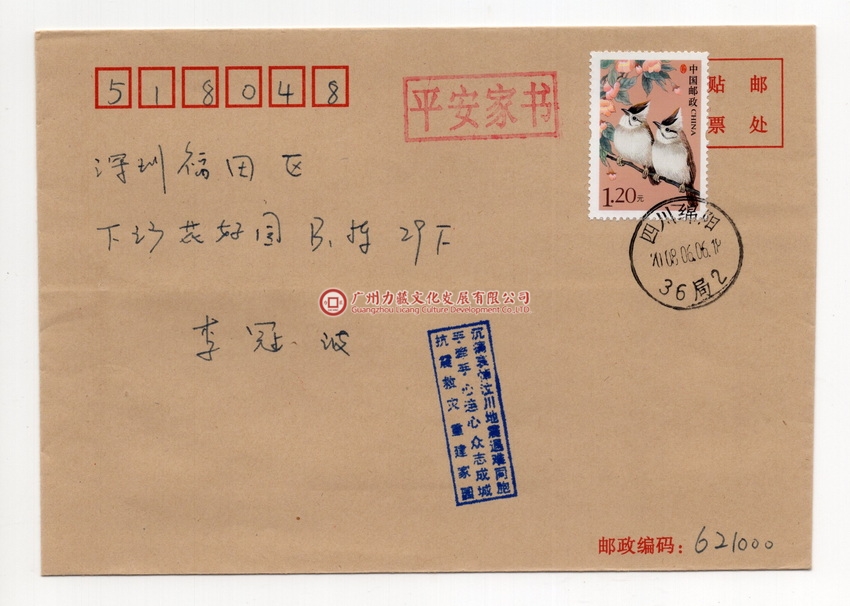 518048
平安家书
中国邮政 CHINA
1.20元
贴 邮
票 处
深圳福田区
下沙花好园 B栋 29F
四川绵阳
2008.06.06.18
36局2
广州力藏文化发展有限公司
Guangzhou Licang Culture Development Co.,LTD
李冠波
沉痛哀悼汶川地震遇难同胞
手牵手心连心众志成城
抗震救灾重建家园
邮政编码：621000